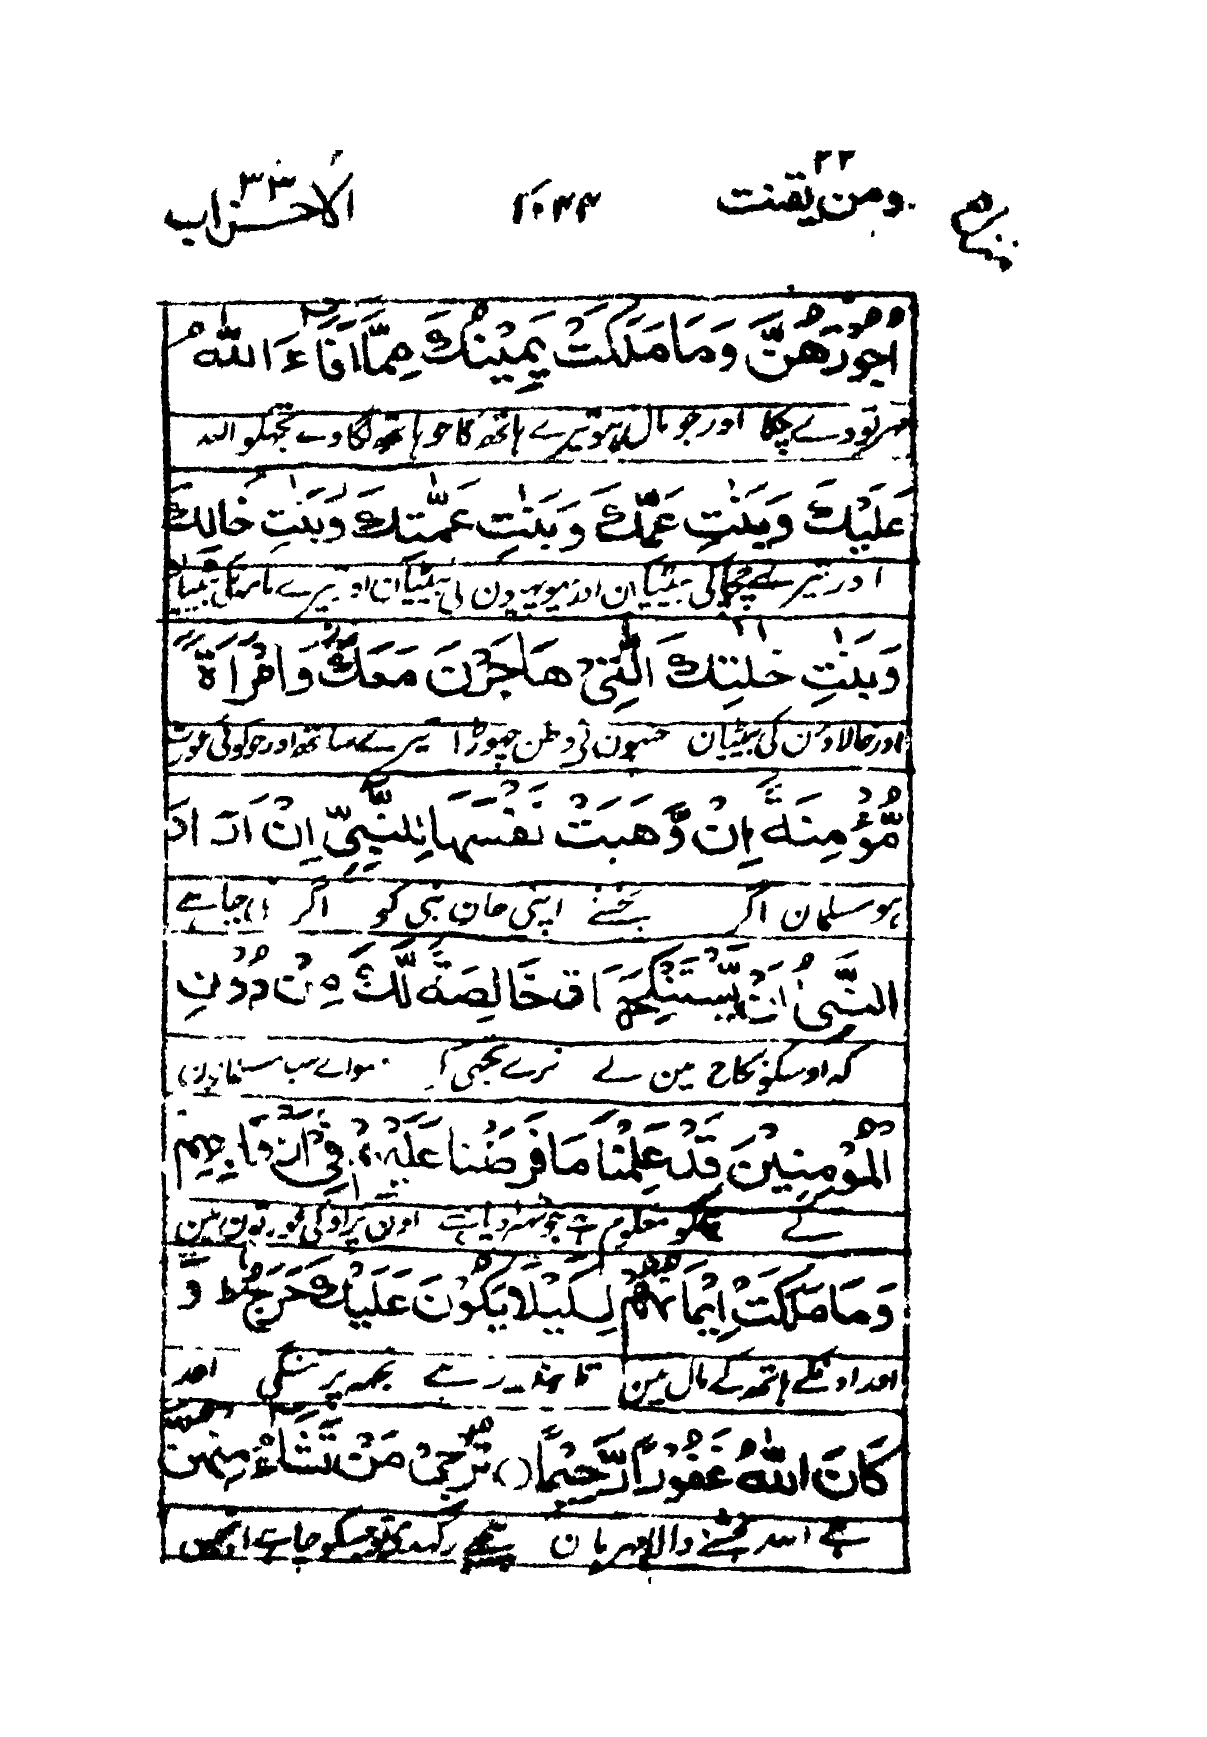 ومن یقنت ٢٢ ١٠٤٤ الاحزاب ٣٣
اُجُوْرَهُنَّ وَمَا مَلَكَتْ يَمِيْنُكَ مِمَّا اَفَآءَ اللّٰهُ
مہر تو دے چکا اور جو مال ہو تیرے ہاتھ کا جو ہاتھ لگا دے تجھکو اللہ
عَلَيْكَ وَبَنٰتِ عَمِّكَ وَبَنٰتِ عَمّٰتِكَ وَبَنٰتِ خَالِكَ
اور تیرے چچا کی بیٹیان اور پھوپھیون کی بیٹیان اور تیرے مامون کی بیٹیان
وَبَنٰتِ خٰلٰتِكَ الّٰتِيْ هَاجَرْنَ مَعَكَ وَامْرَاَةً
اور خالاؤن کی بیٹیان جنہون نی وطن چھوڑا تیرے ساتھ اور جو کوئی عورت
مُّؤْمِنَةً اِنْ وَّهَبَتْ نَفْسَهَا لِلنَّبِيِّ اِنْ اَرَادَ
ہو مسلمان اگر بخشے اپنی جان نبی کو اگر چاہے
النَّبِيُّ اَنْ يَّسْتَنْكِحَهَا ق خَالِصَةً لَّكَ مِنْ دُوْنِ
کہ اوسکو نکاح مین لے نرے تجہی سوائے سب
الْمُؤْمِنِيْنَ قَدْ عَلِمْنَا مَا فَرَضْنَا عَلَيْهِمْ فِيْ اَزْوَاجِهِمْ
کے ہمکو معلوم ہے جو ٹھہرا دیا ہے اون پر اونکی عورتون مین
وَمَا مَلَكَتْ اَيْمَانُهُمْ لِكَيْلَا يَكُوْنَ عَلَيْكَ حَرَجٌ ط وَ
اور اونکے ہاتھ کے مال مین تا نہ رہے تجھ پر تنگی اور
كَانَ اللّٰهُ غَفُوْرًا رَّحِيْمًا ( ) تُرْجِيْ مَنْ تَشَآءُ مِنْهُنَّ
ہے اللہ بخشنے والا مہربان پیچھے رکھدی تو جسکو چاہے اونمین